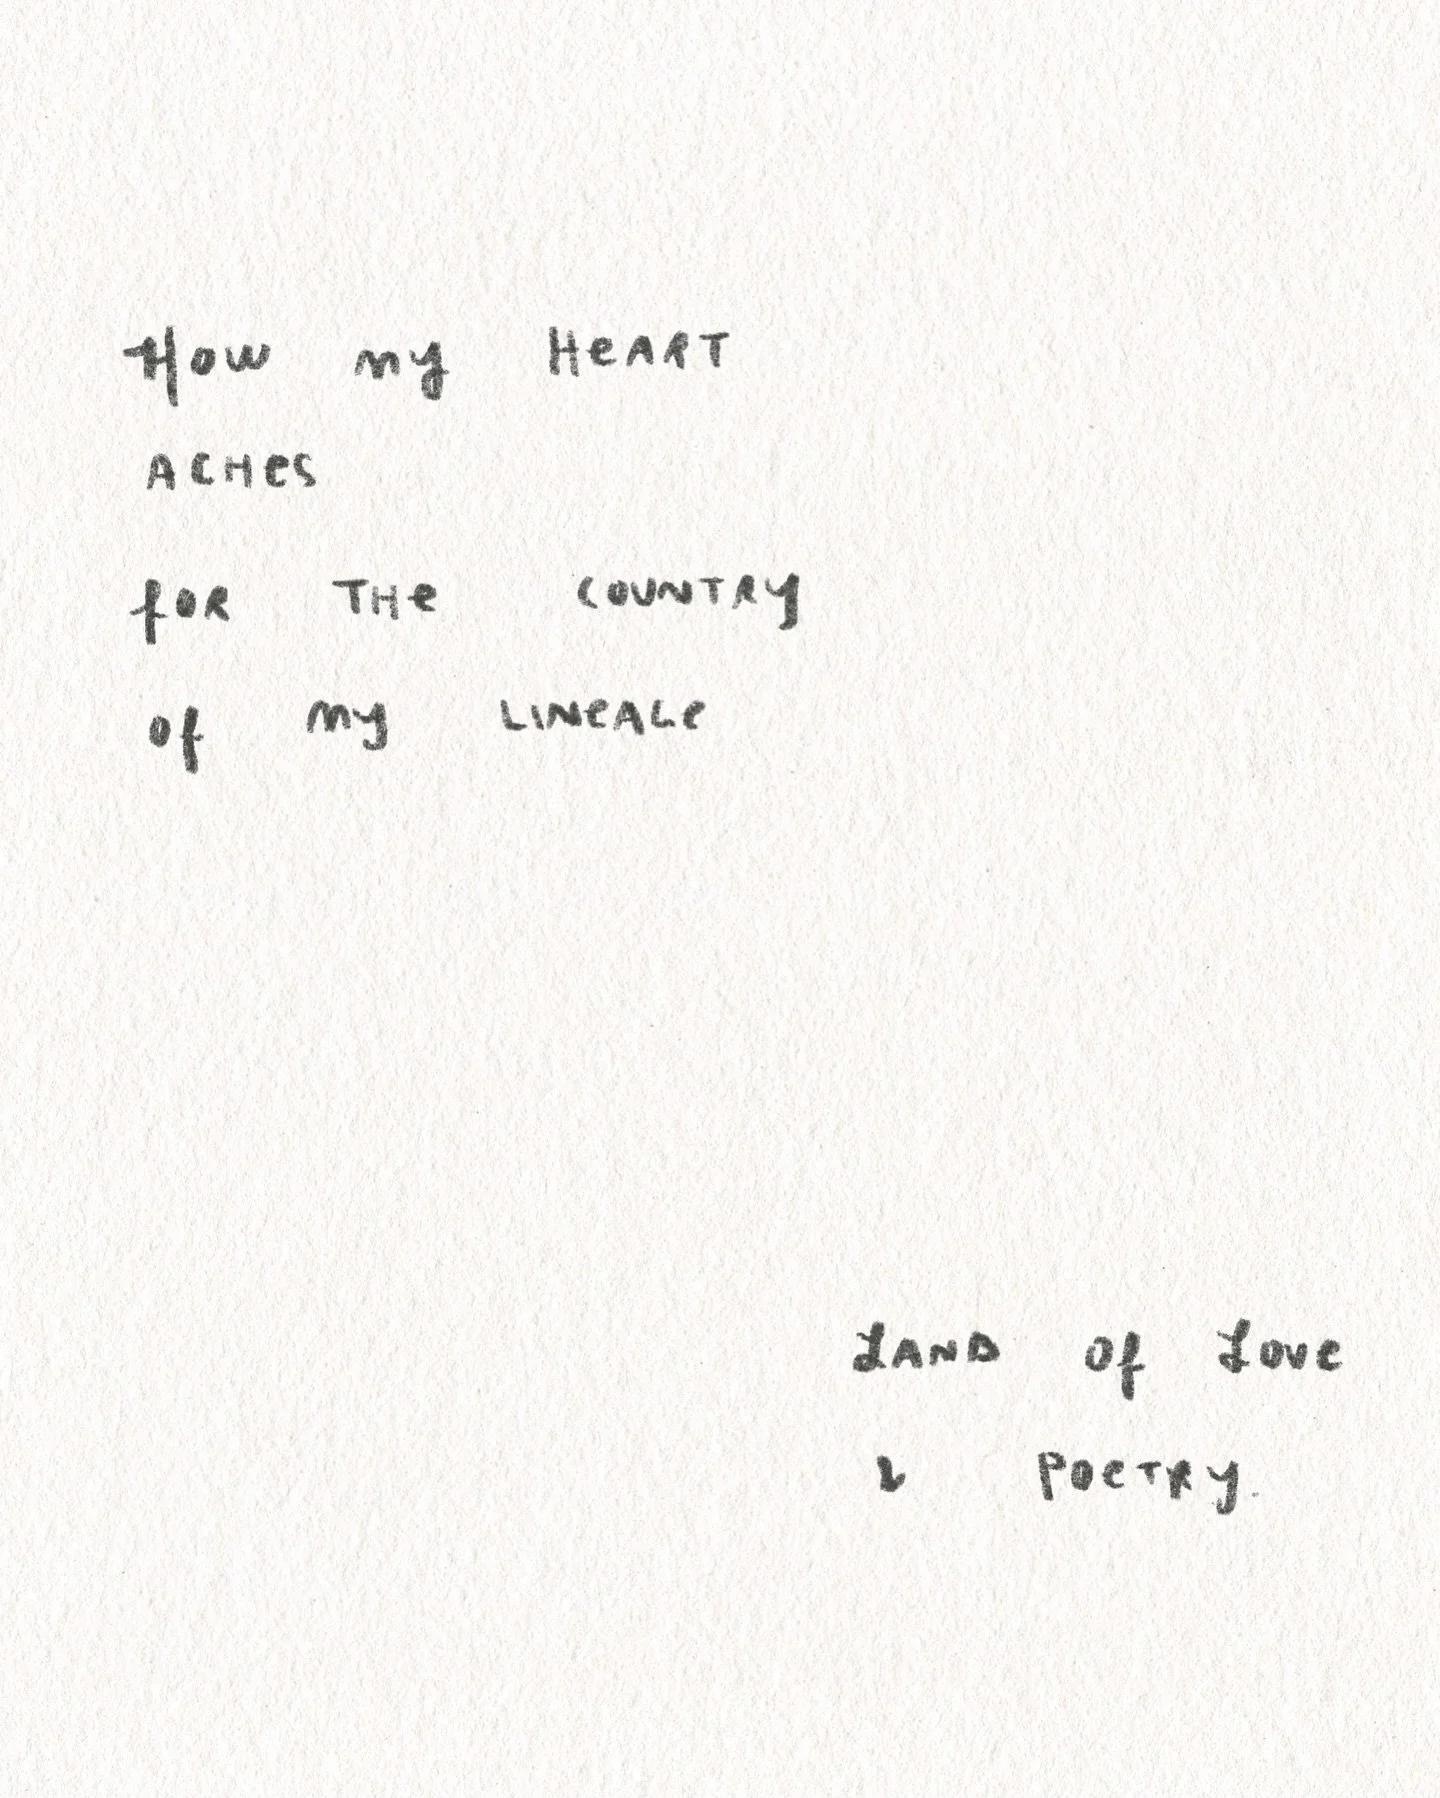 How my HeART
ACHes
foR THe COUNTRY
of my LINeAGe
LAND of Love
& POeTRY.